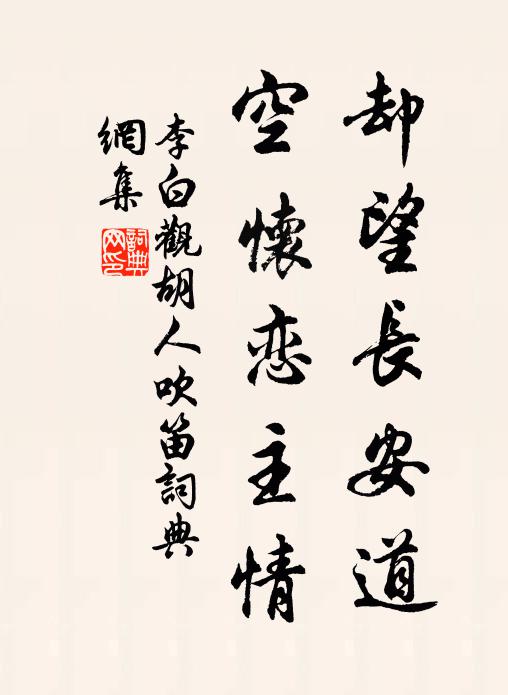 却望長安道
空懷恋主情
李白觀胡人吹笛詞典
網集
詞典
网印